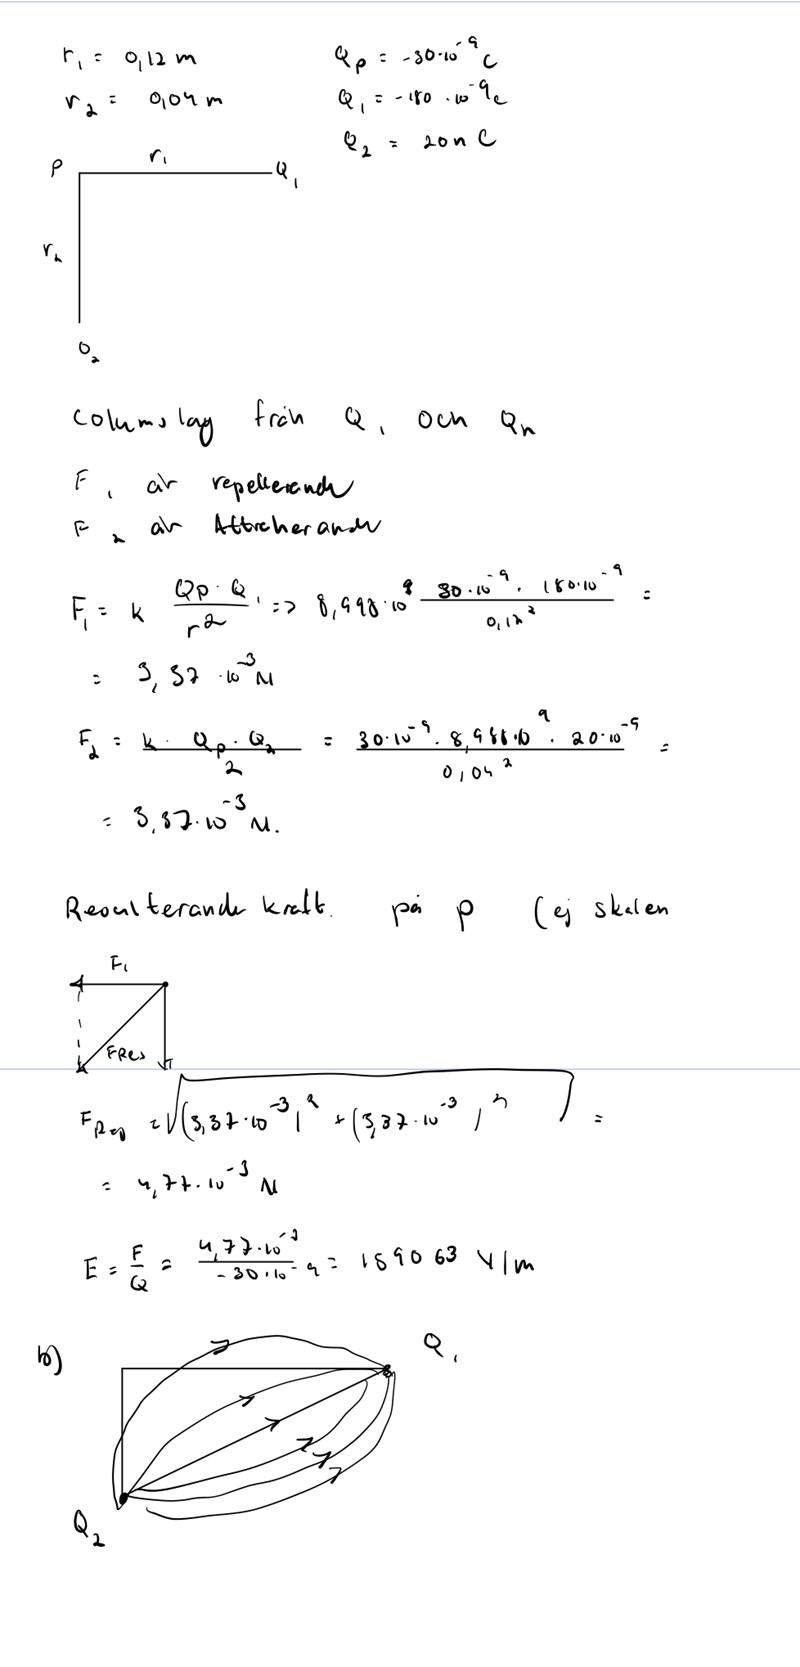 r₁ = 0,12 m
Qp = -30·10⁻⁹ C
r₂ = 0,04 m
Q₁ = -180 · 10⁻⁹ C
Q₂ = 20 n C
P r₁ Q₁
r₂
Q₂
Columslag från Q₁ och Q₂
F₁ är repellerande
F₂ är Attraherande
F₁ = k Qp · Q₁ / r² => 8,998·10⁹ 30·10⁻⁹ · 180·10⁻⁹ / 0,12² =
= 3,37 ·10⁻³ N
F₂ = k · Qp · Q₂ / 2 = 30·10⁻⁹ · 8,988·10⁹ · 20·10⁻⁹ / 0,04² =
= 3,37·10⁻³ N.
Resulterande kraft. på p (ej skalen
F₁
FRes
F = √(3,37·10⁻³)² + (3,37·10⁻³)² =
= 4,77·10⁻³ N
E = F/Q = 4,77·10⁻³ / -30·10⁻⁹ = 159063 V/m
b) Q₁
Q₂